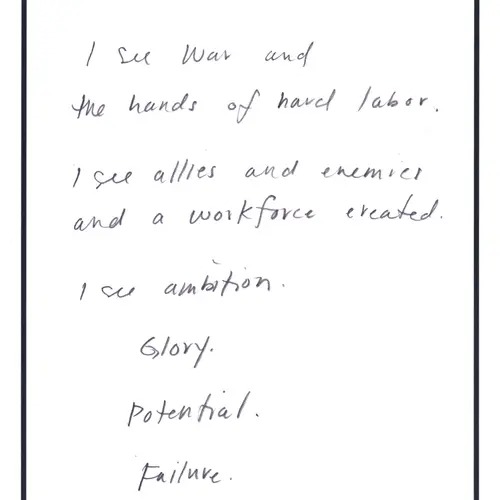 I see war and
the hands of hard labor.
I see allies and enemies
and a workforce created.
I see ambition.
Glory.
Potential.
Failure.